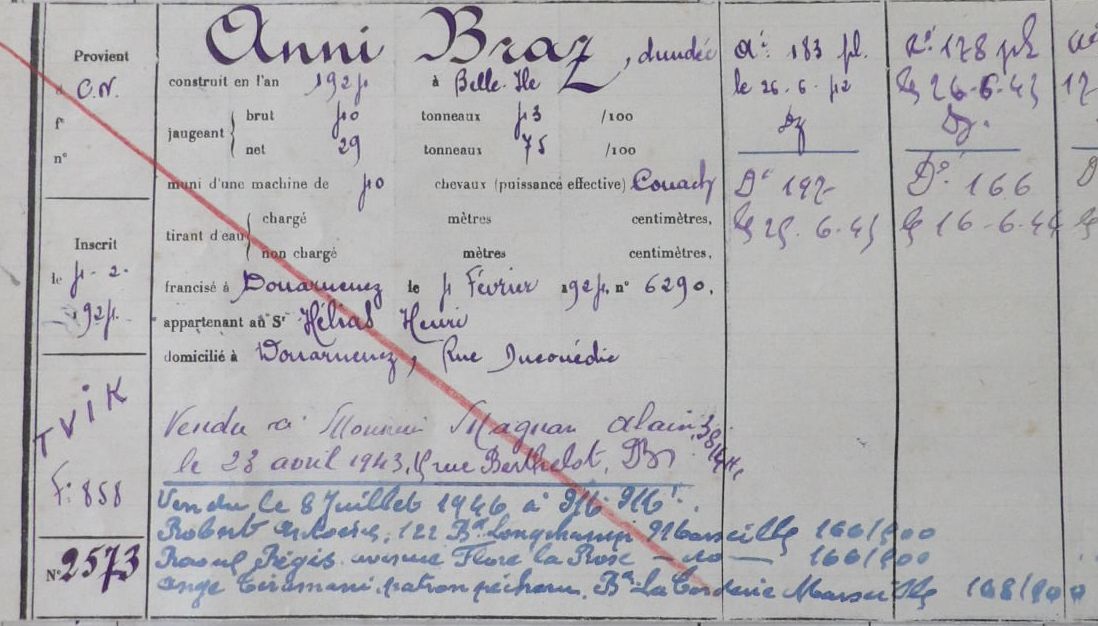 Provient
d C.N.
f°
n°
Inscrit
le 4-2-
1924
TVIK
F: 858
N° 2573
Anni Braz, dundée
construit en l'an 1924 à Belle-Ile
jaugeant brut 40 tonneaux 43 /100
net 29 tonneaux 75 /100
muni d'une machine de 40 chevaux (puissance effective) Couach
tirant d'eau chargé mètres centimètres,
non chargé mètres centimètres,
francisé à Douarnenez le 4 Février 1924, n° 6290,
appartenant au Sr Hélias Henri
domicilié à Douarnenez, Rue Ducouédic
Vendu à Monsieur Magnan Alain
le 28 avril 1943, rue Berthelot,
Vendu le 8 Juillet 1946 à
Robert 122 Bd Longchamp Marseille 166/900
Raoul Régis avenue Flore la Rose — do — 166/900
Ange Tiramani patron pêcheur, Bd La Corderie Marseille 168/900
183 pl.
le 26-6-42
Do 197-
le 25-6-45
178 pl
le 26-6-43
Do 166
le 16-6-44